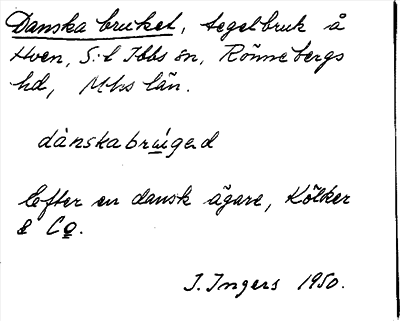 Danska bruket, tegelbruk å
Hven, S:t Ibbs sn, Rönnebergs
hd, Mhs län.
dànskabrúgəd
Efter en dansk ägare, Kölker
& Co.
I. Ingers 1950.